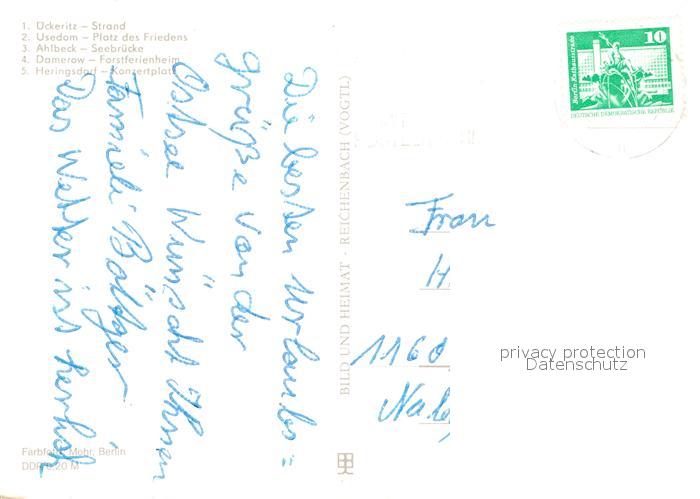 1. Ückeritz – Strand
2. Usedom – Platz des Friedens
3. Ahlbeck – Seebrücke
4. Damerow – Forstferienheim
5. Heringsdorf – Konzertplatz
Die besten Urlaubs=
grüße von der
Ostsee Wünscht Ihnen
Familie Böttger
Das Wetter ist herrlich
Farbfotos: Mohr, Berlin
DDR 0,20 M
BILD UND HEIMAT · REICHENBACH (VOGTL)
Berlin, Rathausstraße
10
DEUTSCHE DEMOKRATISCHE REPUBLIK
Frau
H
1160
privacy protection
Datenschutz